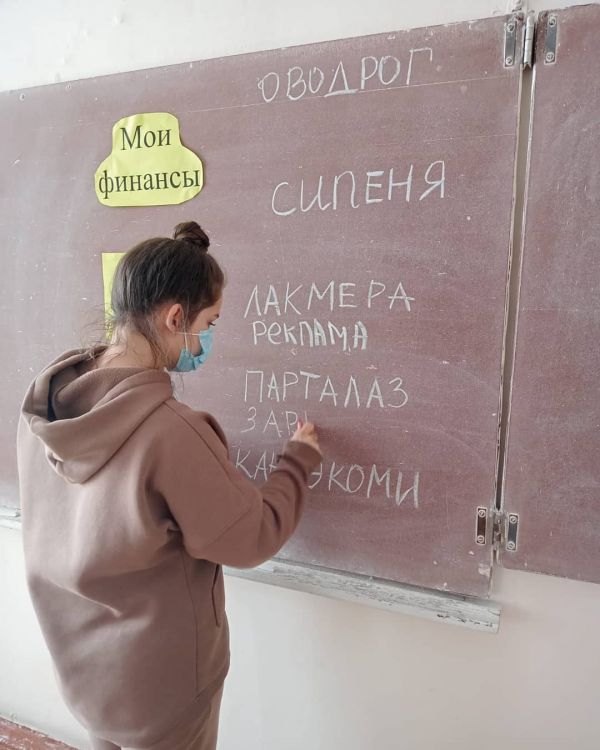 ОВОДРОГ
Мои
финансы
СИПЕНЯ
ЛАКМЕРА
РЕКЛАМА
ПАРТАЛАЗ
ЗАР
ЭКОМИ